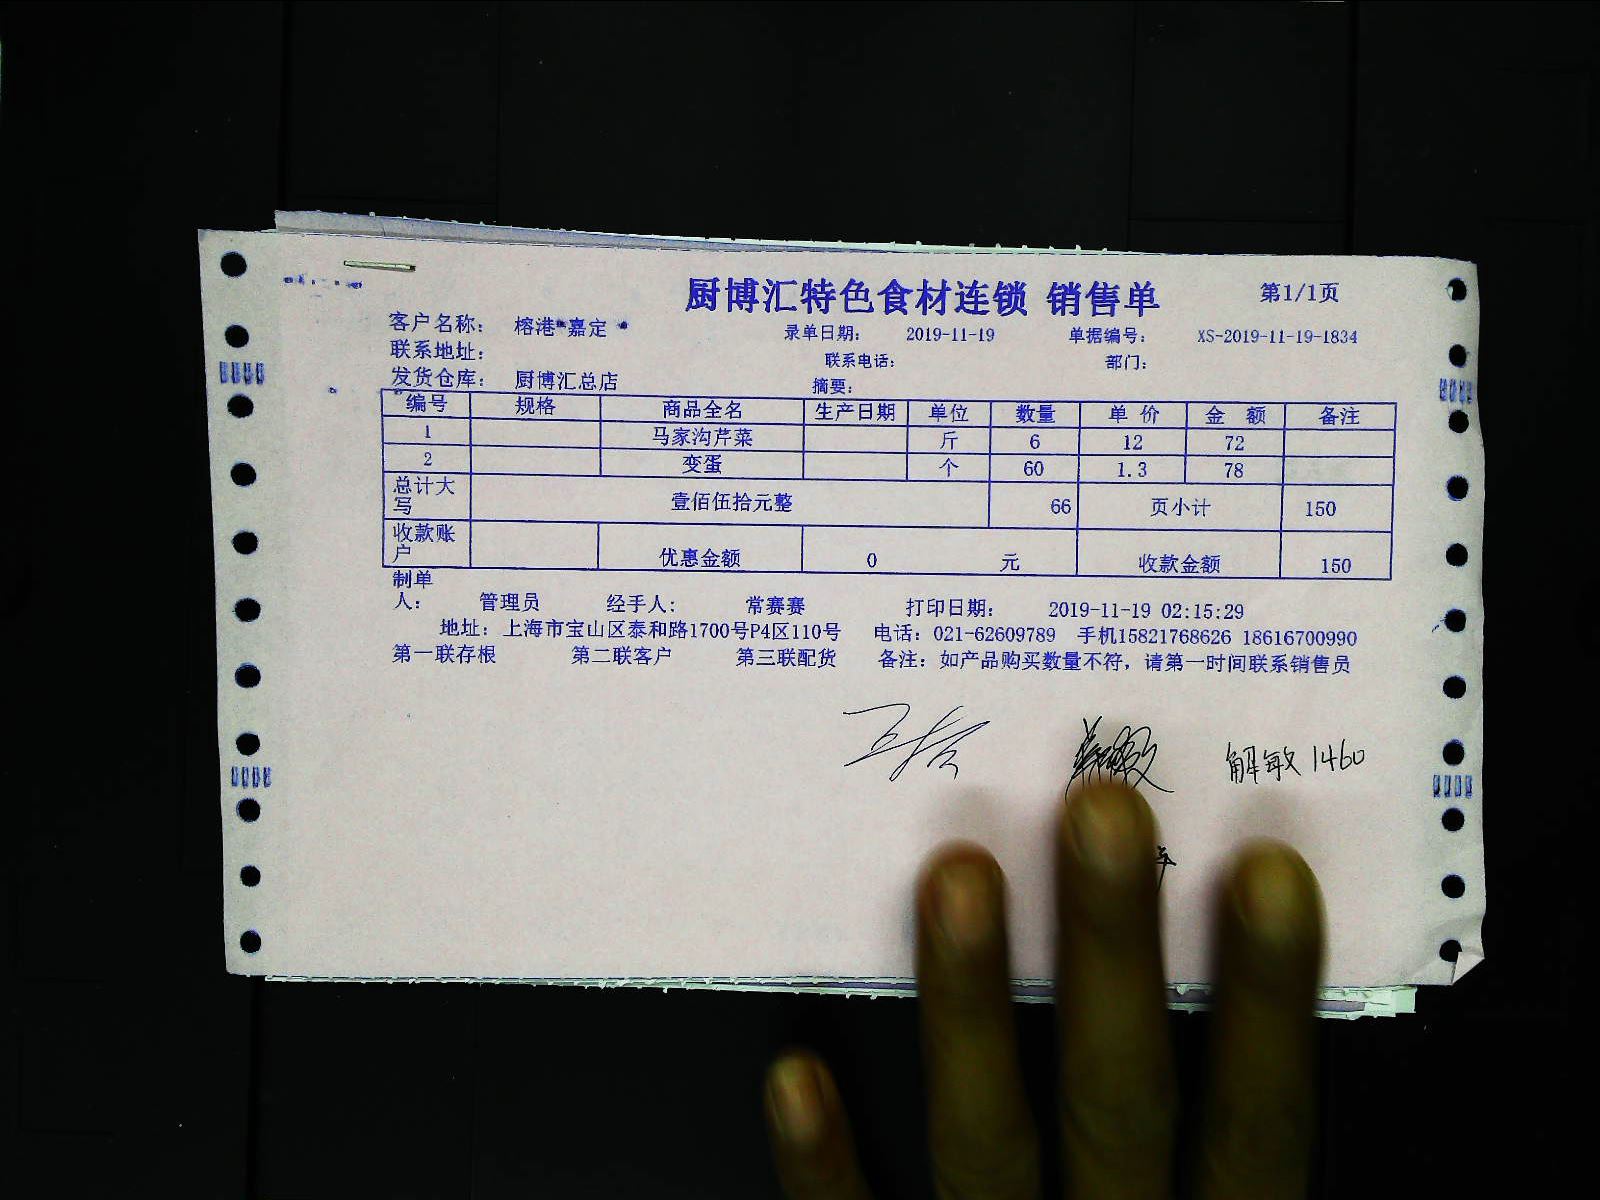 厨博汇特色食材连锁 销售单 第1/1页
客户名称： 榕港*嘉定 * 录单日期： 2019-11-19 单据编号： XS-2019-11-19-1834
联系地址： 联系电话： 部门：
发货仓库： 厨博汇总店 摘要：
编号 规格 商品全名 生产日期 单位 数量 单 价 金 额 备注
1 马家沟芹菜 斤 6 12 72
2 变蛋 个 60 1.3 78
总计大写 壹佰伍拾元整 66 页小计 150
收款账户 优惠金额 0 元 收款金额 150
制单人： 管理员 经手人： 常赛赛 打印日期： 2019-11-19 02:15:29
地址：上海市宝山区泰和路1700号P4区110号 电话：021-62609789 手机15821768626 18616700990
第一联存根 第二联客户 第三联配货 备注：如产品购买数量不符，请第一时间联系销售员
解敏 1460